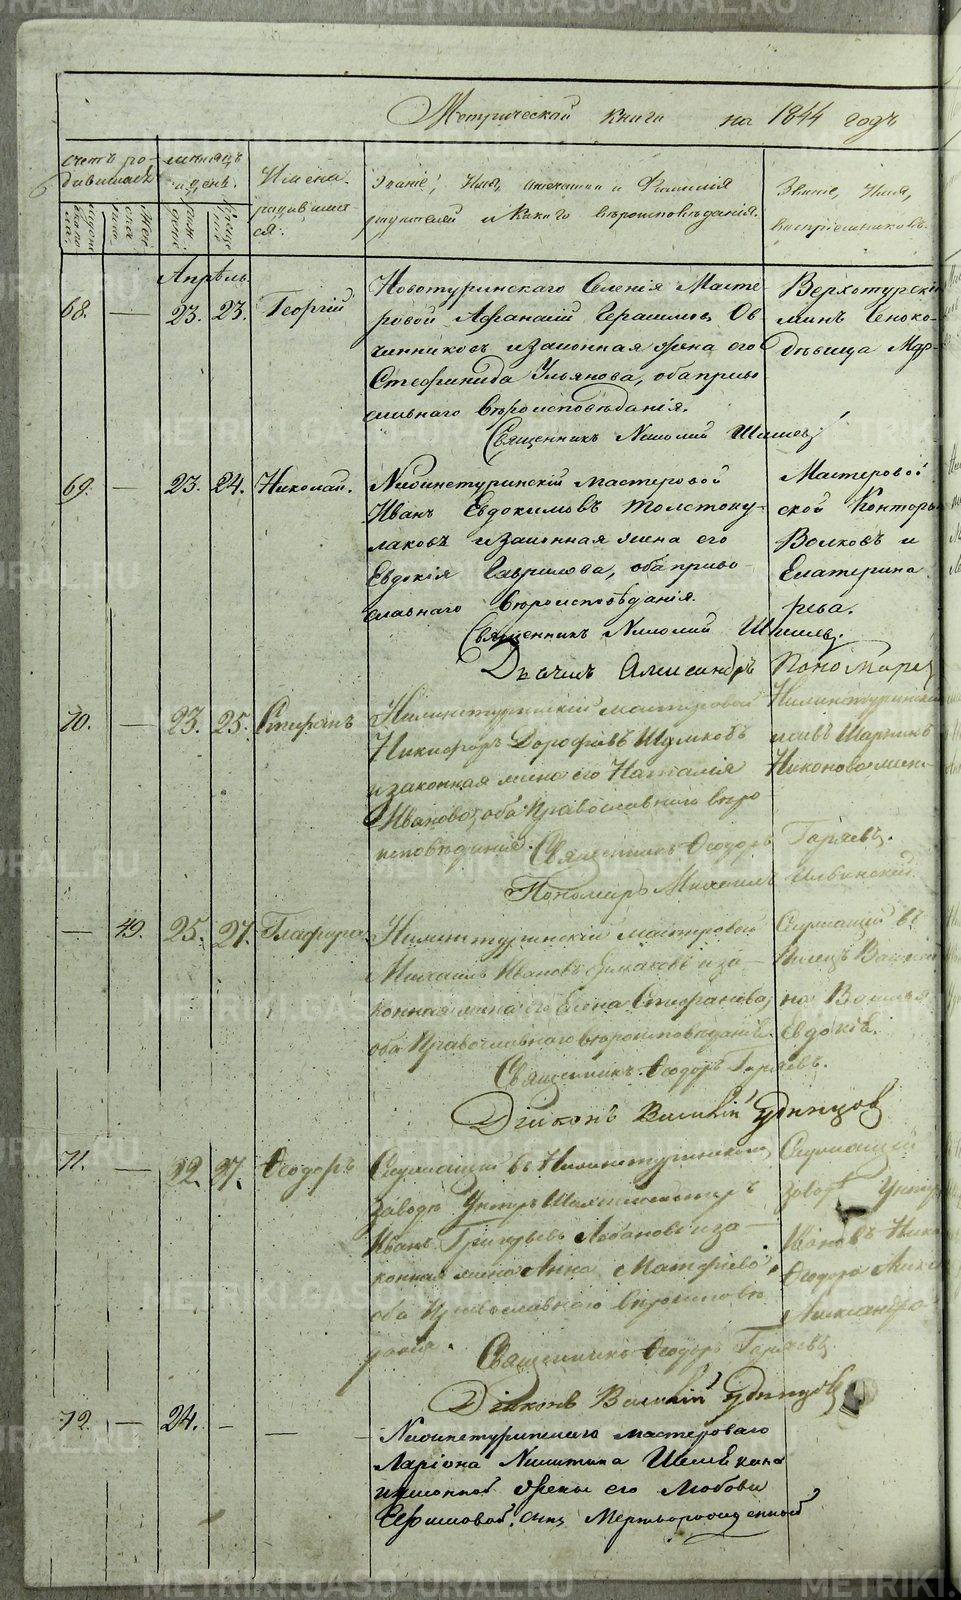 Метрической книги на 1844 годъ
счетъ родившихся
мѣсяцъ и день.
Имена родившихся.
Званіе, Имя, отечество и Фамилія
родителей и какого вѣроисповѣданія.
Званіе, Имя,
воспріемниковъ.
Апрѣль
68. — 23. 23. Георгій
Новотуринскаго Селенія Масте
ровой Афанасій Герасимовъ Ов
чинниковъ и законная жена его
Стефанида Ульянова, оба право
славнаго вѣроисповѣданія.
Священникъ Николай
Верхотурскій
дѣвица Мар-
69. — 23. 24. Николай.
Нижнетуринскій мастеровой
Иванъ Евдокимовъ Толстоку-
лаковъ и законная жена его
Евдокія Гаврилова, оба право
славнаго вѣроисповѣданія.
Священникъ Николай
Дьячекъ Александръ Пономарев
Мастеровой
ской Конторы
Волковъ и
Екатерина
рьва.
70. — 23. 25. Стефанъ
Нижнетуринскій мастеровой
Никифоръ Дорофѣевъ Шумковъ
и законная жена его Наталія
Иванова, оба Православнаго вѣро
исповѣданія. Священникъ Ѳеодоръ Горяевъ.
Пономарь Михаилъ Ильинскій.
Нижнетуринскій
Никонова жен-
— 49. 25. 27. Глафира
Нижнетуринскій мастеровой
Михаилъ Ивановъ Ермаковъ и за
конная жена его Елена Стефанова,
оба Православнаго вѣроисповѣданія.
Священникъ Ѳеодоръ Горяевъ.
Діаконъ Василій Удинцов
Служащій въ
на Василья
Евдокія.
71. — 22. 27. Ѳеодоръ
Служащій въ Нижнетуринскомъ
заводѣ Унтеръ Шихтмейстеръ
Иванъ Григорьевъ Лобановъ и за
конная жена Анна Матфіева,
оба Православнаго вѣроисповѣ
данія.
Священникъ Ѳеодоръ Горяевъ
Діаконъ Василій Удинцов
Служащій
Завод Унтер
Ивановъ Нико
Ѳеодора Алек
Александро
72. — 24. — —
Нижнетуринскаго мастероваго
Ларіона Никитина
законной жены его Любови
Ефимовой, сынъ Мертворожденный
METRIKI.GASO-URAL.RU